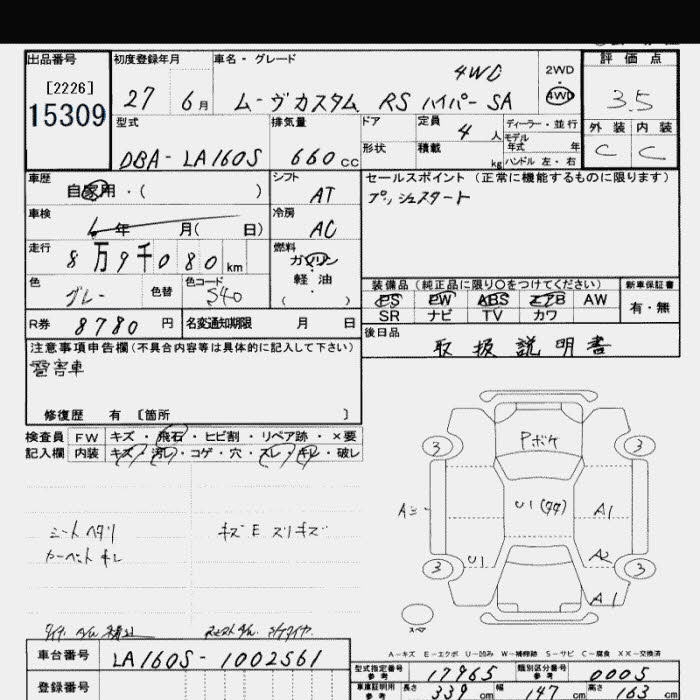 出品番号 初度登録年月 車名・グレード 評価点
[2226]
15309
27 6月
4WD
ムーヴカスタム RS ハイパーSA
2WD
4WD
3.5
型式 排気量 ドア 定員 4人 ディーラー・並行 外装 内装
モデル年式 年
DBA-LA160S 660cc 形状 積載 kg ハンドル 左・右 C C
車歴 シフト セールスポイント(正常に機能するものに限ります)
自家用・( ) AT プッシュスタート
車検 冷房
年 月( 日) AC
走行 燃料
8万9千080km ガソリン
色 色替 色コード 軽油
グレー S40 ( )
装備品(純正品に限り○をつけてください) 新車保証書
PS PW ABS エアB AW 有・無
SR ナビ TV カワ
R券 8780円 名変通知期限 月 日
後日品 取扱説明書
注意事項申告欄(不具合内容等は具体的に記入して下さい)
雹害車
修復歴 有 [箇所 ]
検査員 FW キズ・飛石・ヒビ割・リペア跡・×要
記入欄 内装 キズ・汚レ・コゲ・穴・スレ・キレ・破レ
シートヘタリ
カーペットキレ
キズE スリキズ
Pボケ
3 3
U1
A1
U1 A2
3 3
A1
スペア
A-キズ E-エクボ U-凹み W-補修跡 S-サビ C-腐食 XX-交換済
車台番号 LA160S-1002561
登録番号
型式指定番号 参考 17965 類別区分番号 参考 0005
車庫証明用 参考 長さ 339cm 幅 147cm 高さ 163cm